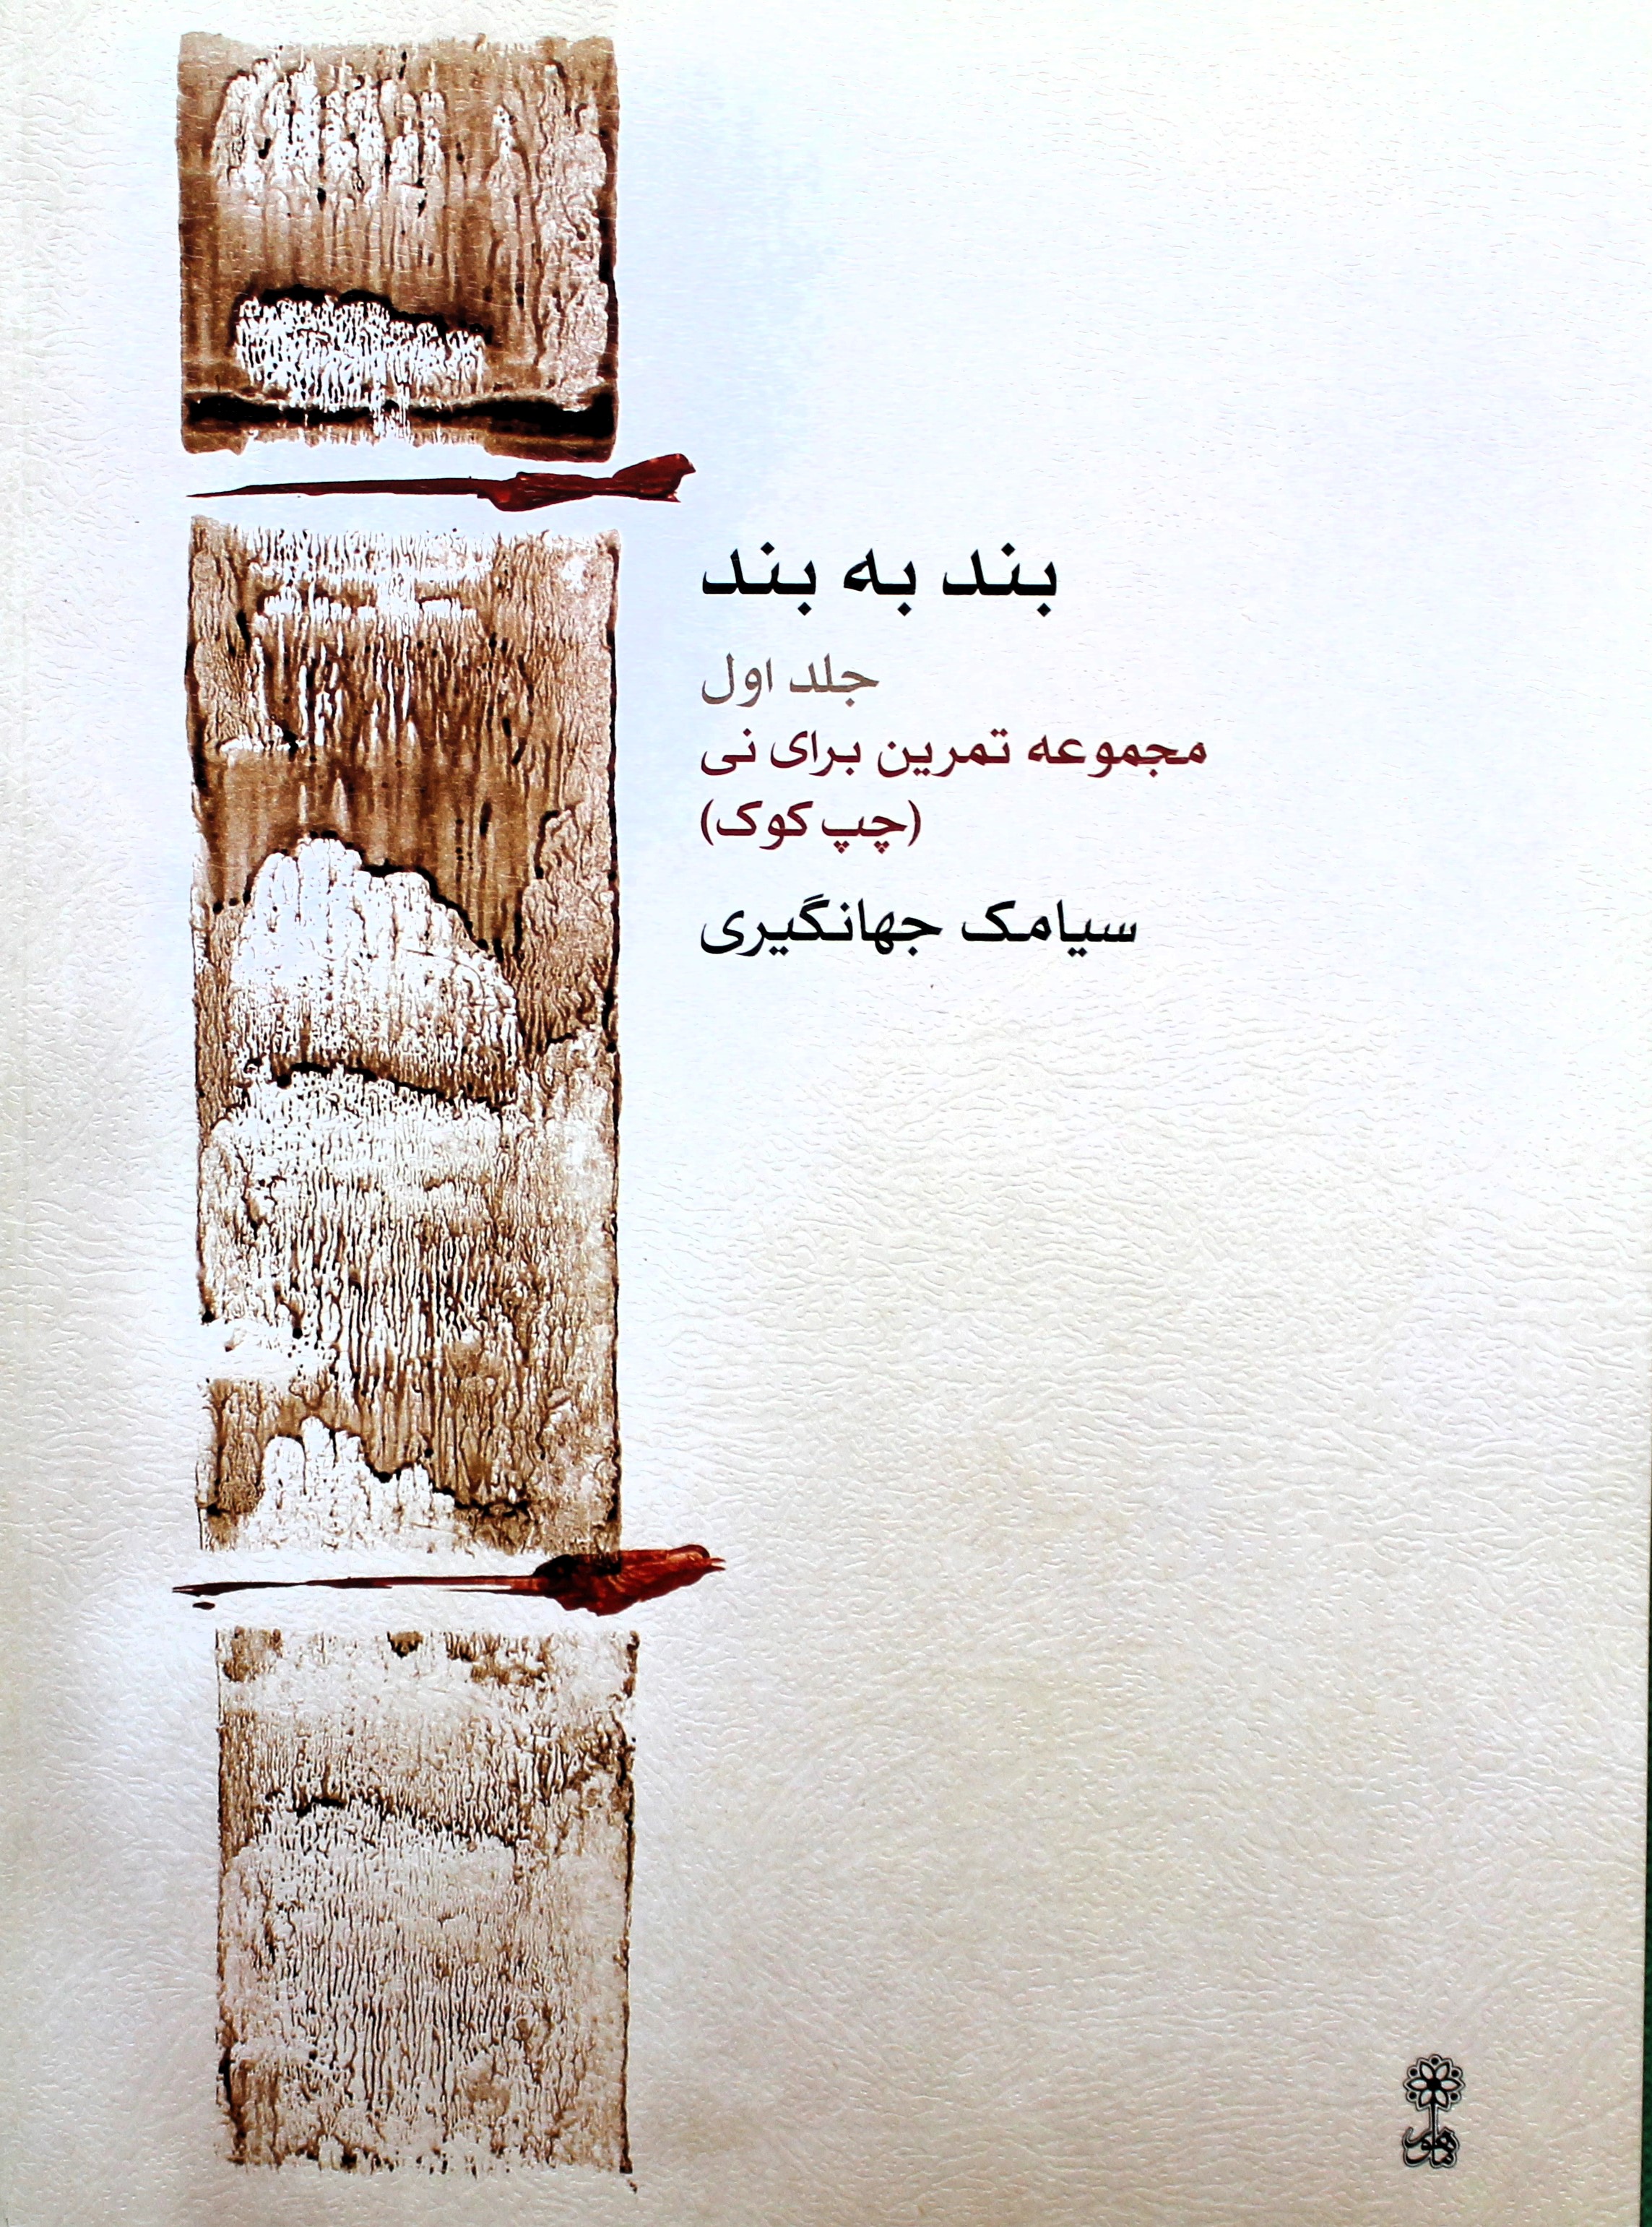 بند به بند
جلد اول
مجموعه تمرین برای نی
(چپ کوک)
سیامک جهانگیری
ماهور